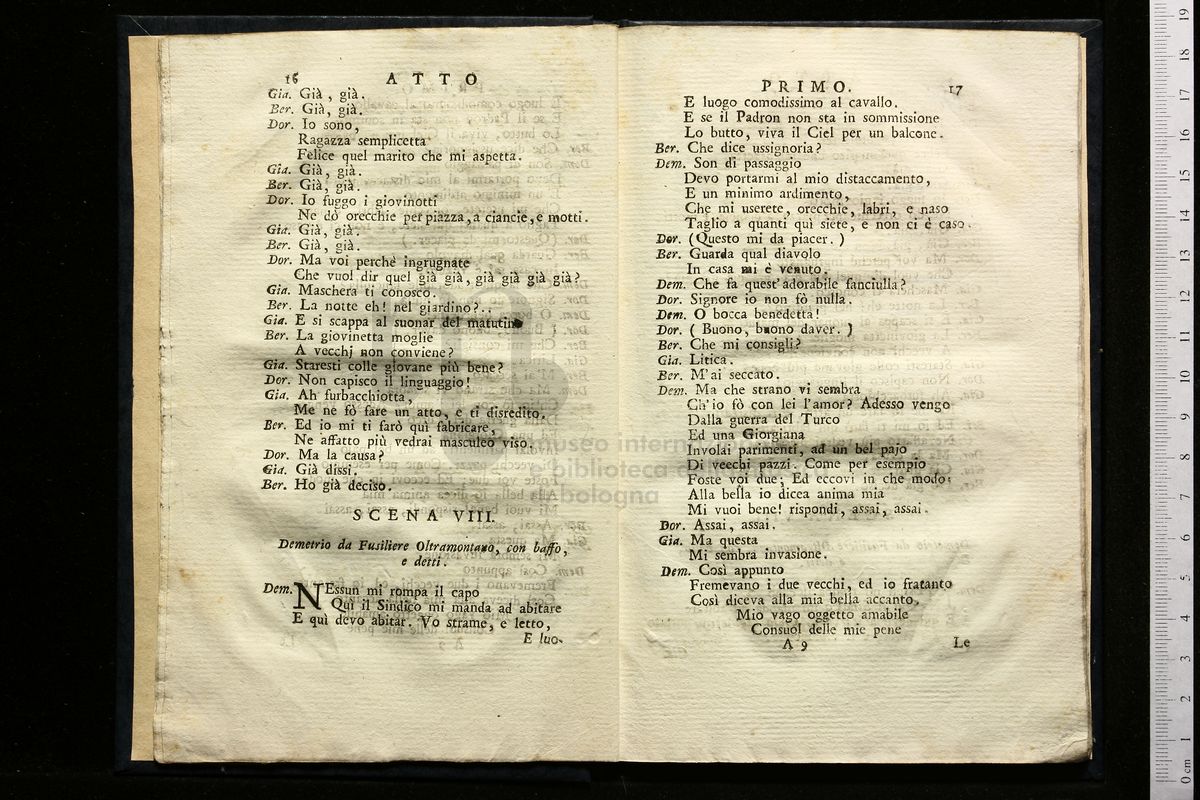 16 ATTO
Gia. Già, già.
Ber. Già, già.
Dor. Io sono,
Ragazza semplicetta
Felice quel marito che mi aspetta.
Gia. Già, già.
Ber. Già, già.
Dor. Io fuggo i giovinotti
Ne dò orecchie per piazza, a ciancie, e motti.
Gia. Già, già.
Ber. Già, già.
Dor. Ma voi perchè ingrugnate
Che vuol dir quel già già, già già già già?
Gia. Maschera ti conosco.
Ber. La notte eh! nel giardino?..
Gia. E si scappa al suonar del matutin
Ber. La giovinetta moglie
A vecchj non conviene?
Gia. Staresti colle giovane più bene?
Dor. Non capisco il linguaggio!
Gia. Ah furbacchiotta,
Me ne fò fare un atto, e ti disredito.
Ber. Ed io mi ti farò quì fabricare,
Ne affatto più vedrai masculeo viso.
Dor. Ma la causa?
Gia. Già dissi.
Ber. Ho già deciso.
SCENA VIII.
Demetrio da Fusiliere Oltramontano, con baffo,
e detti.
Dem. NEssun mi rompa il capo
Quì il Sindico mi manda ad abitare
E quì devo abitar. Vo strame, e letto,
E luo-
PRIMO. 17
E luogo comodissimo al cavallo.
E se il Padron non sta in sommissione
Lo butto, viva il Ciel per un balcone.
Ber. Che dice ussignoria?
Dem. Son di passaggio
Devo portarmi al mio distaccamento,
E un minimo ardimento,
Che mi userete, orecchie, labri, e naso
Taglio a quanti quì siete, e non ci è caso.
Dor. (Questo mi da piacer.)
Ber. Guarda qual diavolo
In casa mi è venuto.
Dem. Che fa quest'adorabile fanciulla?
Dor. Signore io non fò nulla.
Dem. O bocca benedetta!
Dor. (Buono, buono daver.)
Ber. Che mi consigli?
Gia. Litica.
Ber. M'ai seccato.
Dem. Ma che strano vi sembra
Ch'io fò con lei l'amor? Adesso vengo
Dalla guerra del Turco
Ed una Giorgiana
Involai parimenti, ad un bel pajo
Di vecchi pazzi. Come per esempio
Foste voi due; Ed eccovi in che modo:
Alla bella io dicea anima mia
Mi vuoi bene! rispondi, assai, assai.
Dor. Assai, assai.
Gia. Ma questa
Mi sembra invasione.
Dem. Così appunto
Fremevano i due vecchi, ed io fratanto
Così diceva alla mia bella accanto,
Mio vago oggetto amabile
Consuol delle mie pene
A 9 Le
museo internazionale
e biblioteca della musica
bologna
0 cm 1 2 3 4 5 6 7 8 9 10 11 12 13 14 15 16 17 18 19